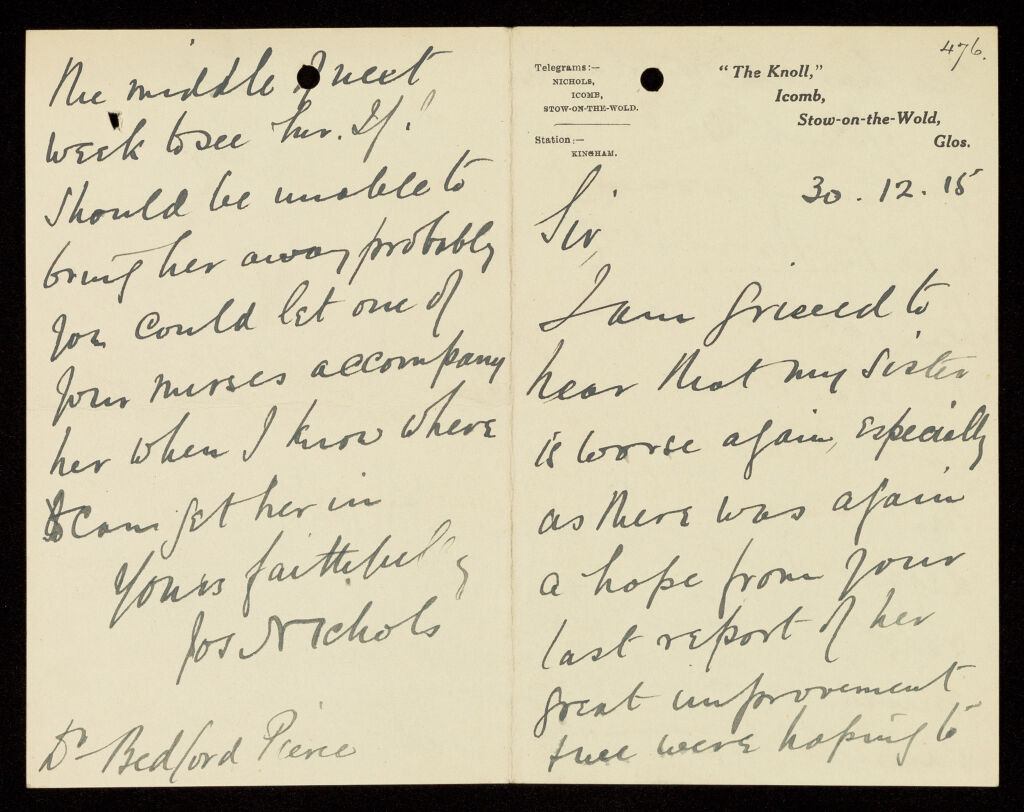 476.
Telegrams:—
NICHOLS,
ICOMB,
STOW-ON-THE-WOLD.
Station:—
KINGHAM.
"The Knoll,"
Icomb,
Stow-on-the-Wold,
Glos.
30.12.15
Sir,
I am grieved to
hear that my sister
is worse again, especially
as there was again
a hope from your
last report of her
great improvement
& we were hoping to
the middle of next
week to see her. If I
should be unable to
bring her away probably
you could let one of
your nurses accompany
her when I know where
I can get her in
Yours faithfully
Jos Nichols
Dr Bedford Pierce